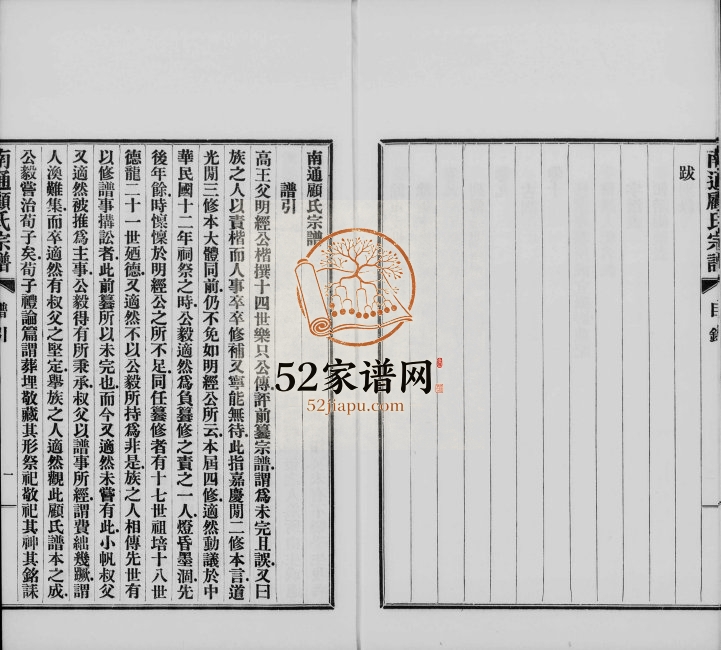 南通顧氏宗譜
目錄
跋
南通顧氏宗譜
譜引
高王父明經公楷撰十四世樂只公傳評前纂宗譜謂爲未完且誤又曰
族之人以責楷而人事卒卒修補又寧能無待此指嘉慶閒二修本言道
光閒三修本大體同前仍不免如明經公所云本屆四修適然動議於中
華民國十二年祠祭之時公毅適然爲負纂修之責之一人燈昏墨涸先
後年餘時懍懍於明經公之所不足同任纂修者有十七世祖培十八世
德龍二十一世廼德又適然不以公毅所持爲非是族之人相傳先世有
以修譜事搆訟者此前纂所以未完也而今又適然未嘗有此小帆叔父
又適然被推爲主事公毅得有所秉承叔父以譜事所經謂費絀幾蹶謂
人渙難集而卒適然有叔父之堅定舉族之人適然觀此顧氏譜本之成
公毅嘗治荀子矣荀子禮論篇謂葬埋敬藏其形祭祀敬祀其神其銘誄
南通顧氏宗譜
譜引
一
52家谱网
52jiapu.com